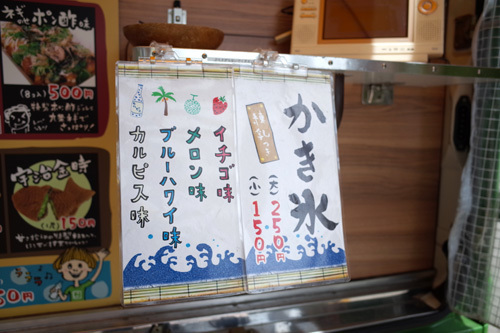 かき氷
練乳つき
(大)250円
(小)150円
イチゴ味
メロン味
ブルーハワイ味
カルピス味
ネギのせ
ポン酢味
(8コ入) 500円
宇治金時
150円
50円